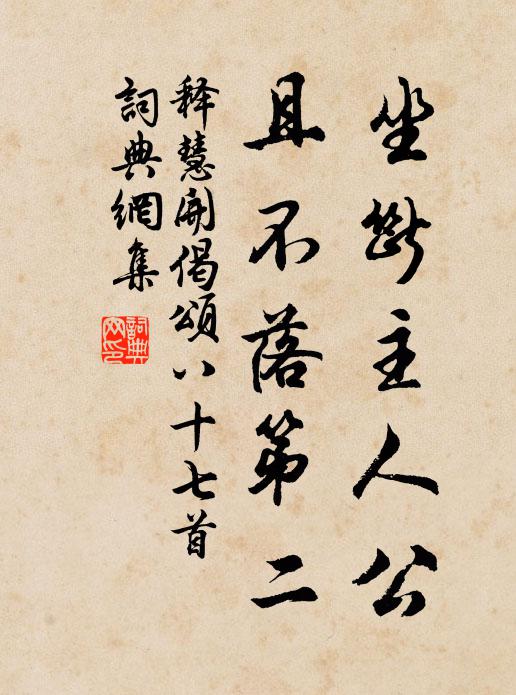 坐斷主人公
且不落第二
释慧開偈頌八十七首
詞典網集
詞典網印